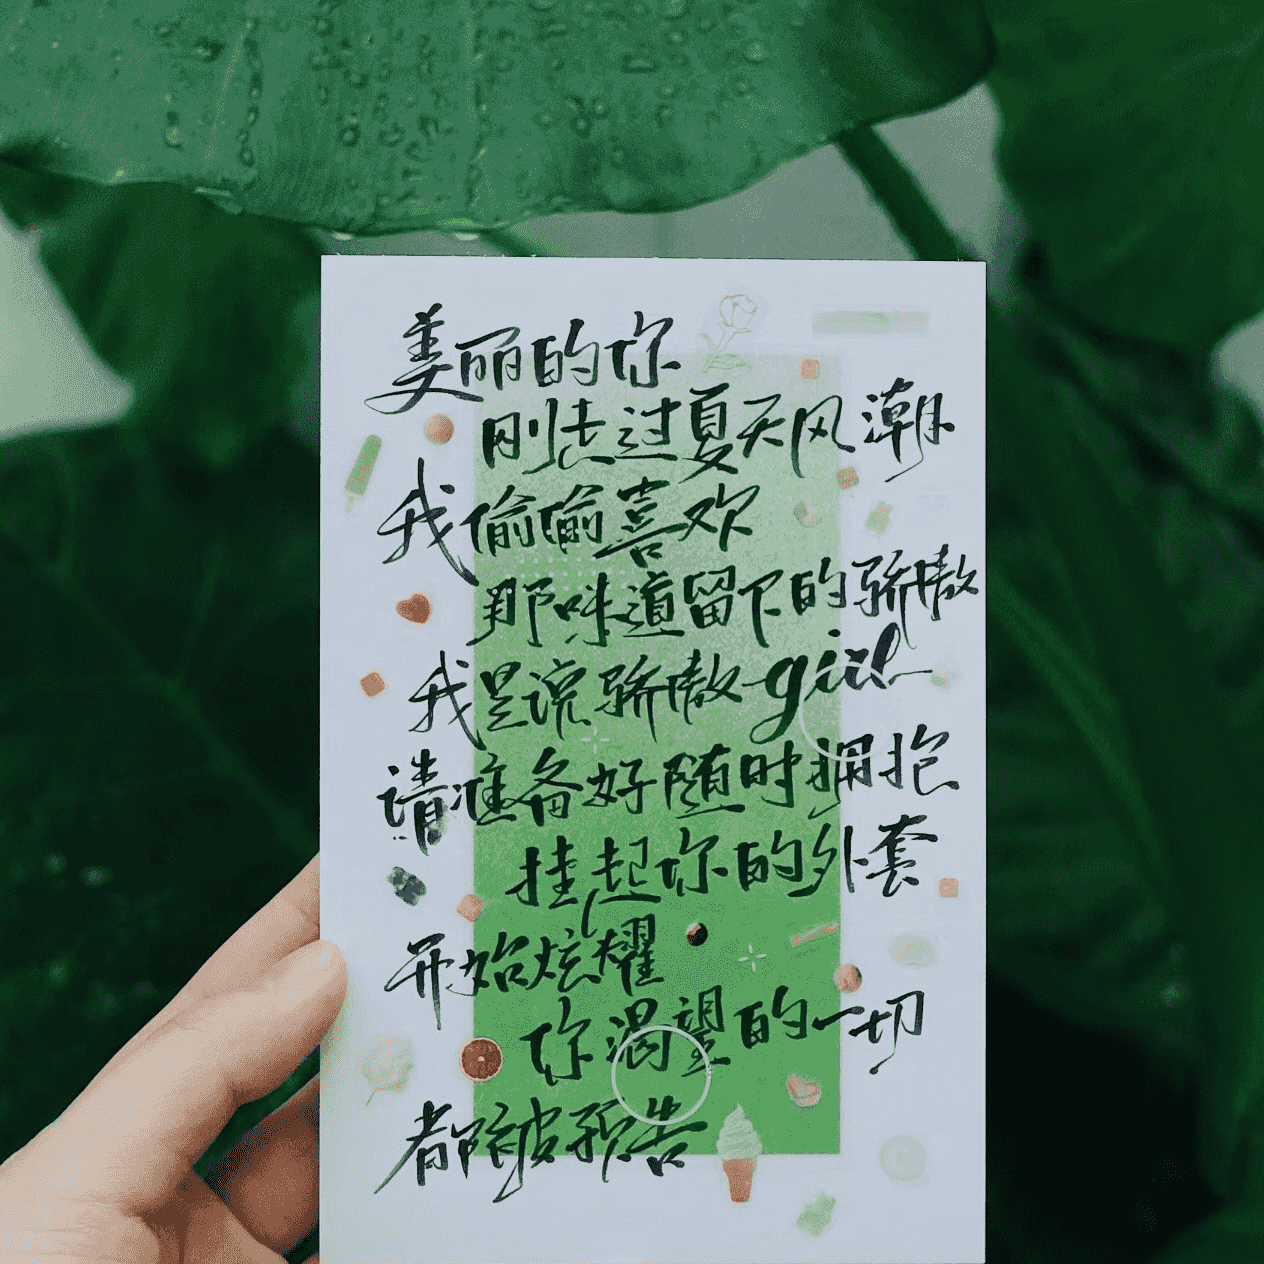 美丽的你
刚去过夏天风潮
我偷偷喜欢
那味道留下的骄傲
我是说骄傲girl
请准备好随时拥抱
挂起你的外套
开始炫耀
你渴望的一切
都被预告